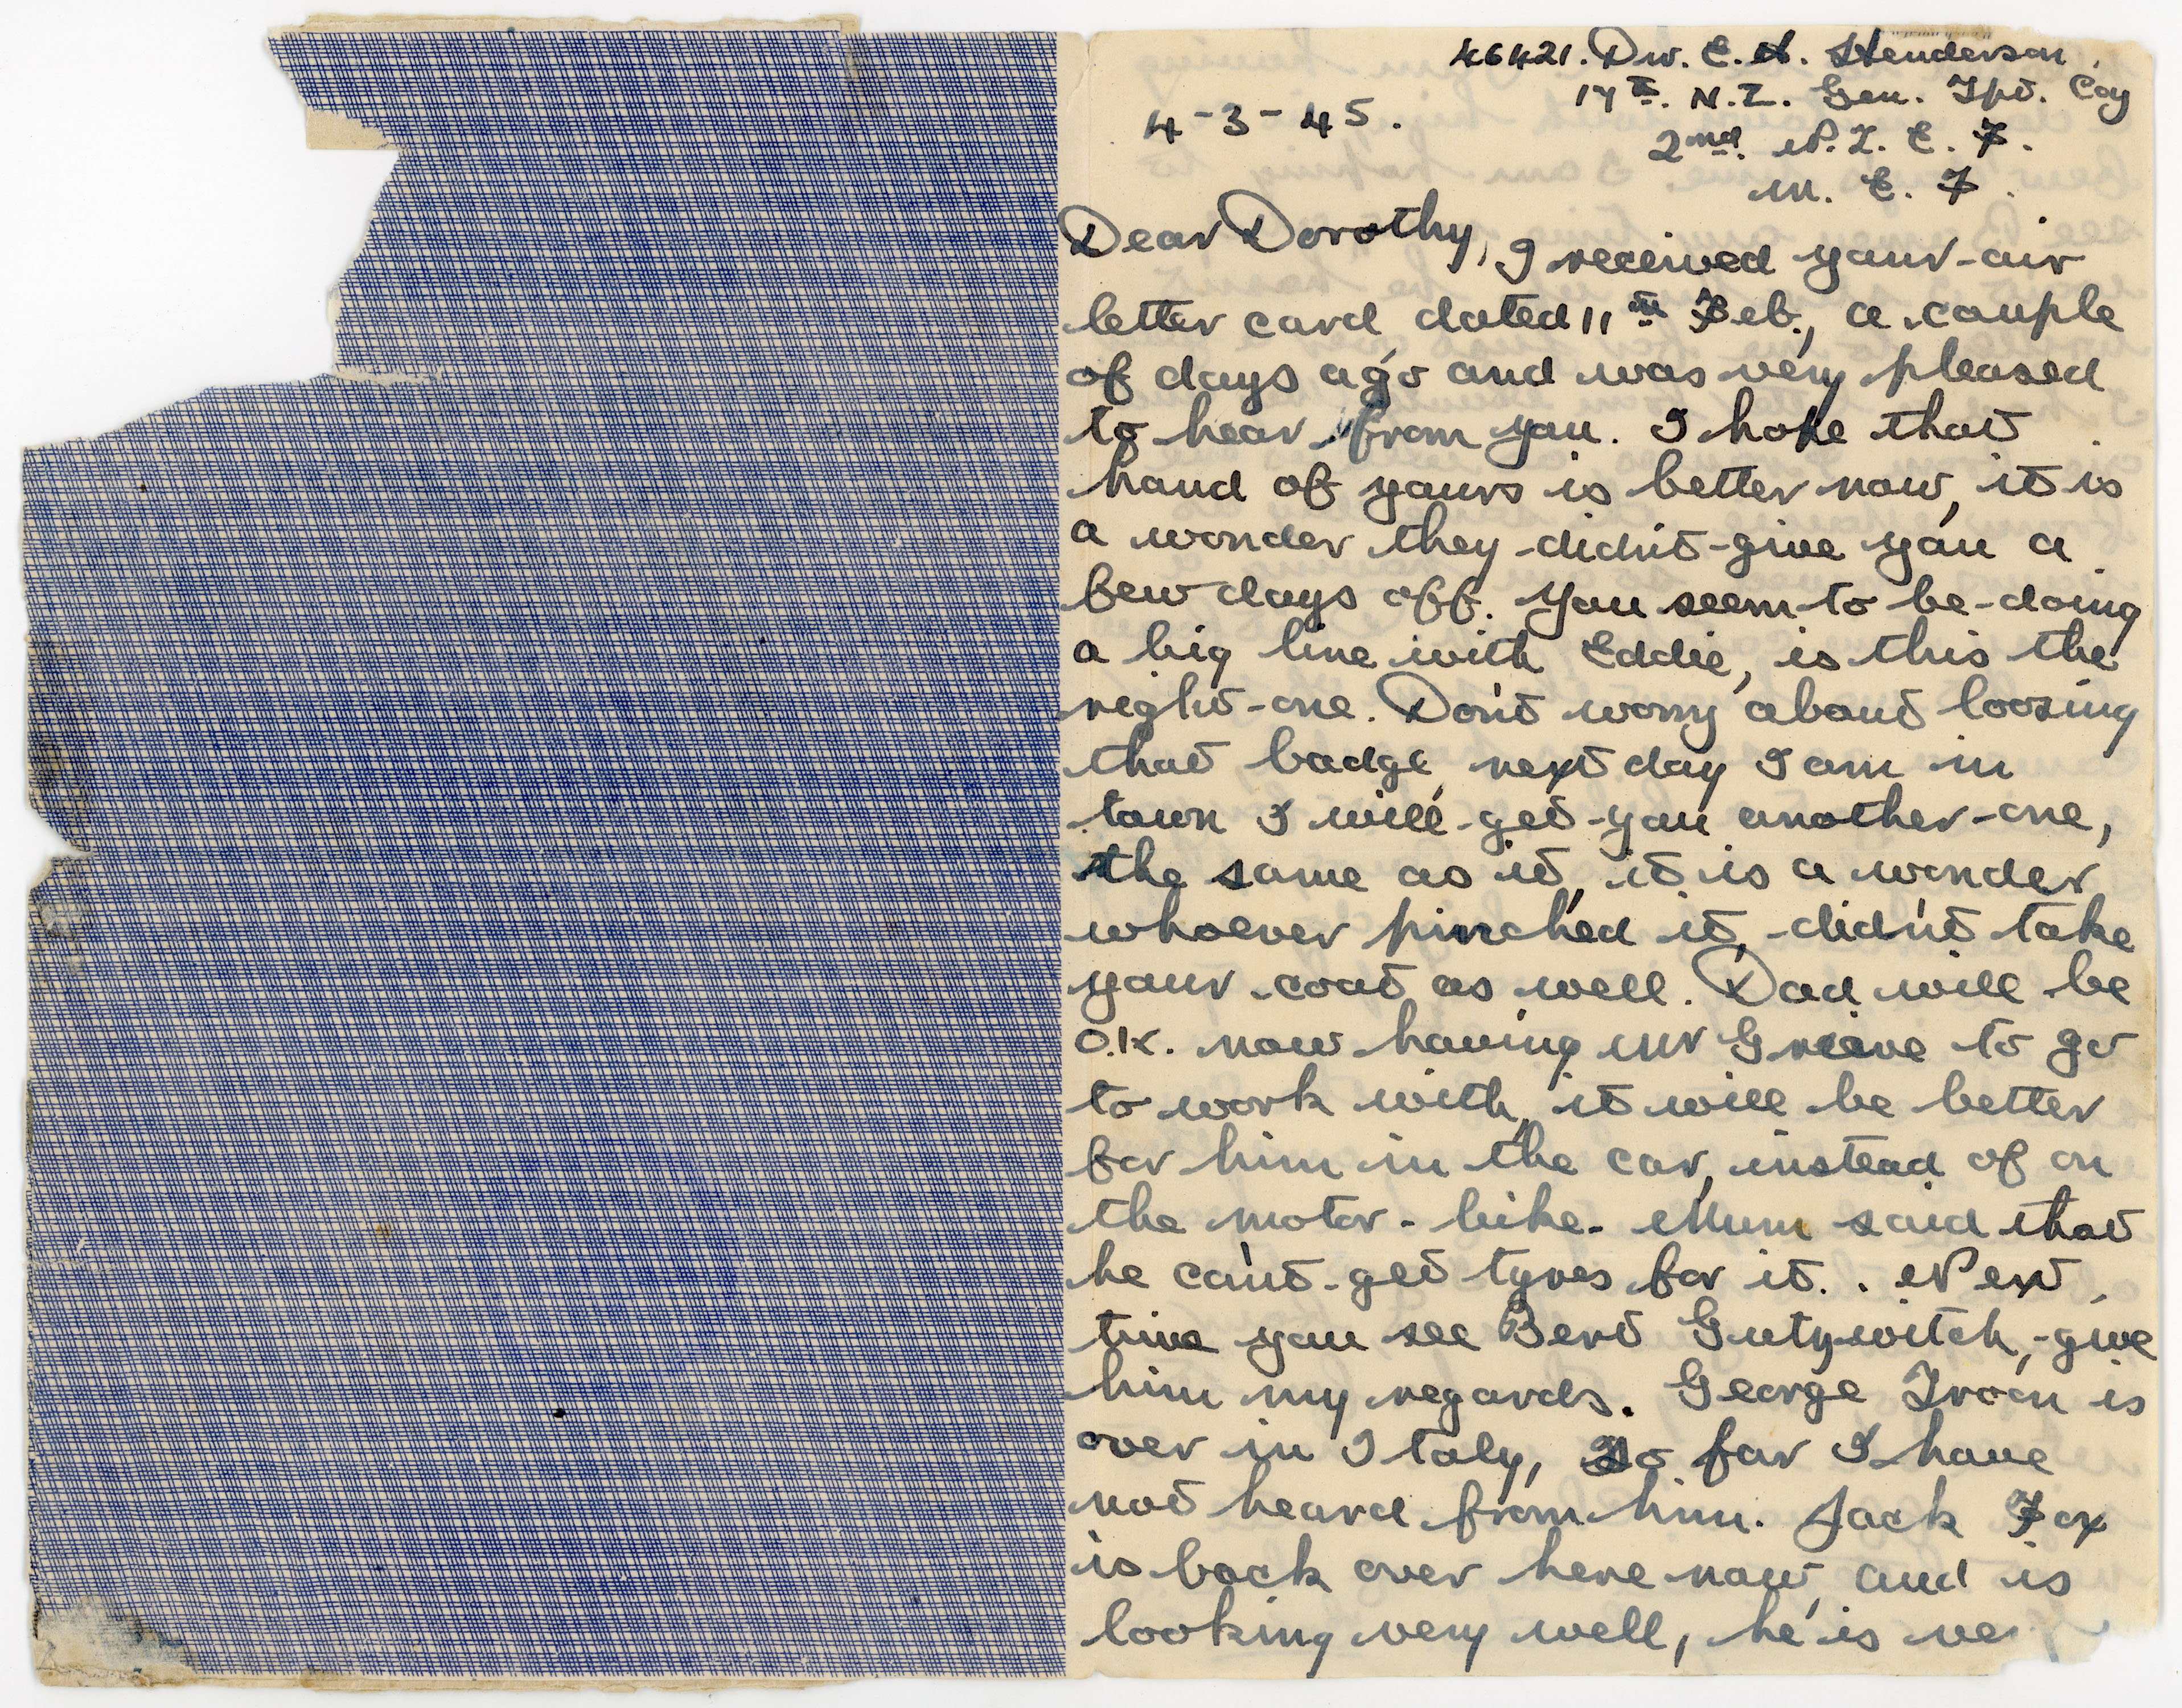 46421. Dvr. E. A. Henderson.
17th. N.Z. Gen. Tpt. Coy
4-3-45.
2nd. N.Z.E.F.
M.E.F.
Dear Dorothy, I received your air
letter card, dated 11th Feb., a couple
of days ago and was very pleased
to hear from you. I hope that
hand of yours is better now, it is
a wonder they didn't give you a
few days off. You seem to be doing
a big line with Eddie, is this the
right one. Don't worry about loosing
that badge, next day I am in
town I will get you another one,
the same as it, it is a wonder
whoever pinched it, didn't take
your coat as well. Dad will be
O.K. now having Mr Grieve to go
to work with, it will be better
for him in the car, instead of on
the motor-bike. Mum said that
he can't get tyres for it. . Next
time you see Bert Gutywitch, give
him my regards. George is
over in Italy, so far I have
not heard from him. Jack Fox
is back over here now, and is
looking very well, he is